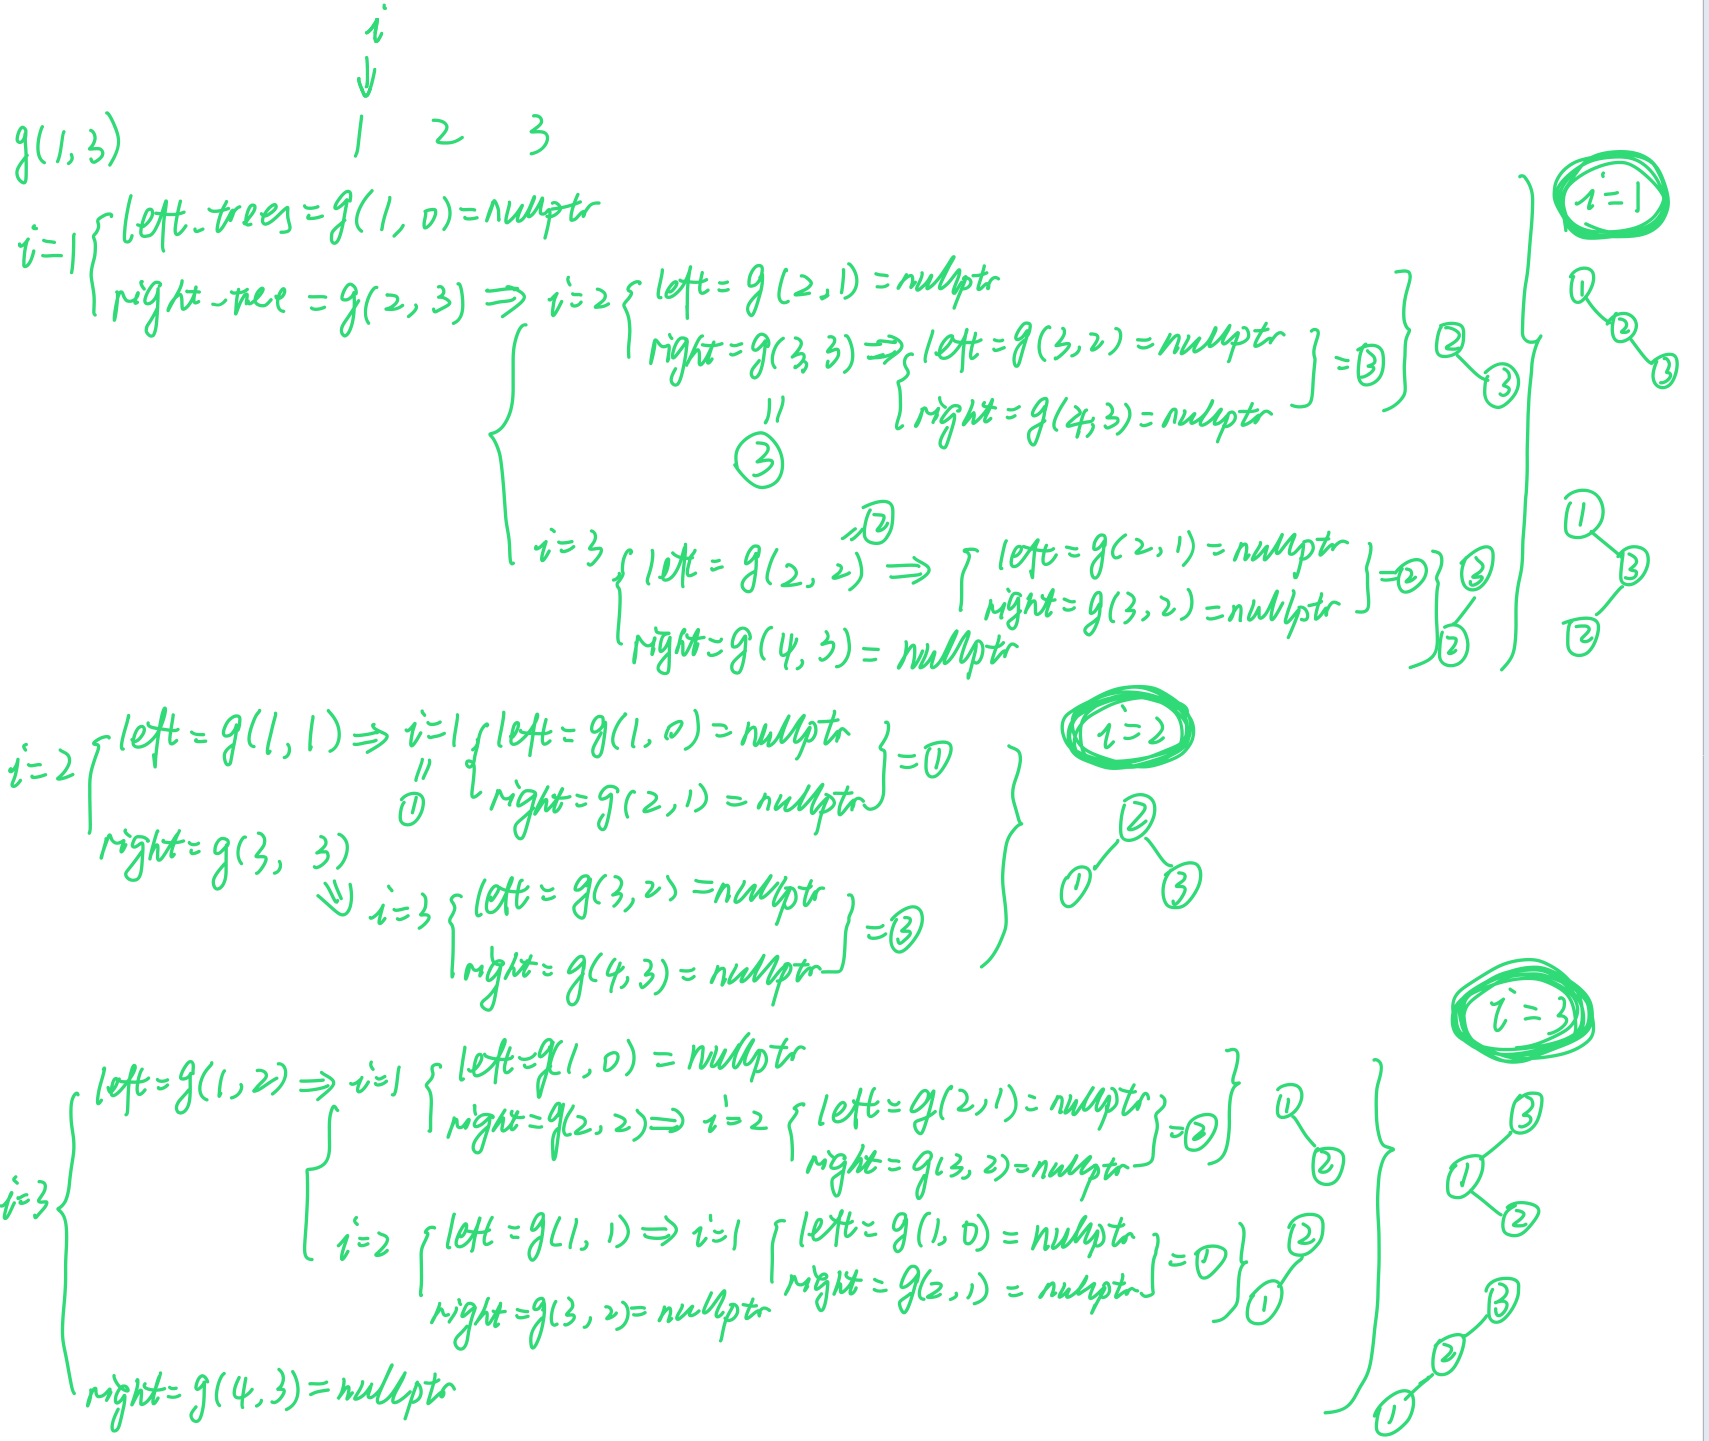 i
↓
g(1,3) 1 2 3
i=1 { left_trees = g(1,0) = nullptr
right_tree = g(2,3) ⇒ i=2 { left = g(2,1) = nullptr
right = g(3,3) ⇒ { left = g(3,2) = nullptr
right = g(4,3) = nullptr } = ③ } ② ③
||
③
i=3 { left = g(2,2) ⇒ { left = g(2,1) = nullptr
= ②
right = g(3,2) = nullptr } = ② } ③ ②
right = g(4,3) = nullptr
i=1
①
②
③
①
③
②
i=2 { left = g(1,1) ⇒ i=1 { left = g(1,0) = nullptr
|| 
①
right = g(2,1) = nullptr } = ①
right = g(3, 3)
⇓ i=3 { left = g(3,2) = nullptr
right = g(4,3) = nullptr } = ③
i=2
②
① ③
i=3 { left = g(1,2) ⇒ i=1 { left = g(1,0) = nullptr
right = g(2,2) ⇒ i=2 { left = g(2,1) = nullptr
right = g(3,2) = nullptr } = ② } ① ②
i=2 { left = g(1,1) ⇒ i=1 { left = g(1,0) = nullptr
right = g(2,1) = nullptr } = ① } ② ①
right = g(3,2) = nullptr
right = g(4,3) = nullptr
i=3
③
①
②
③
②
①